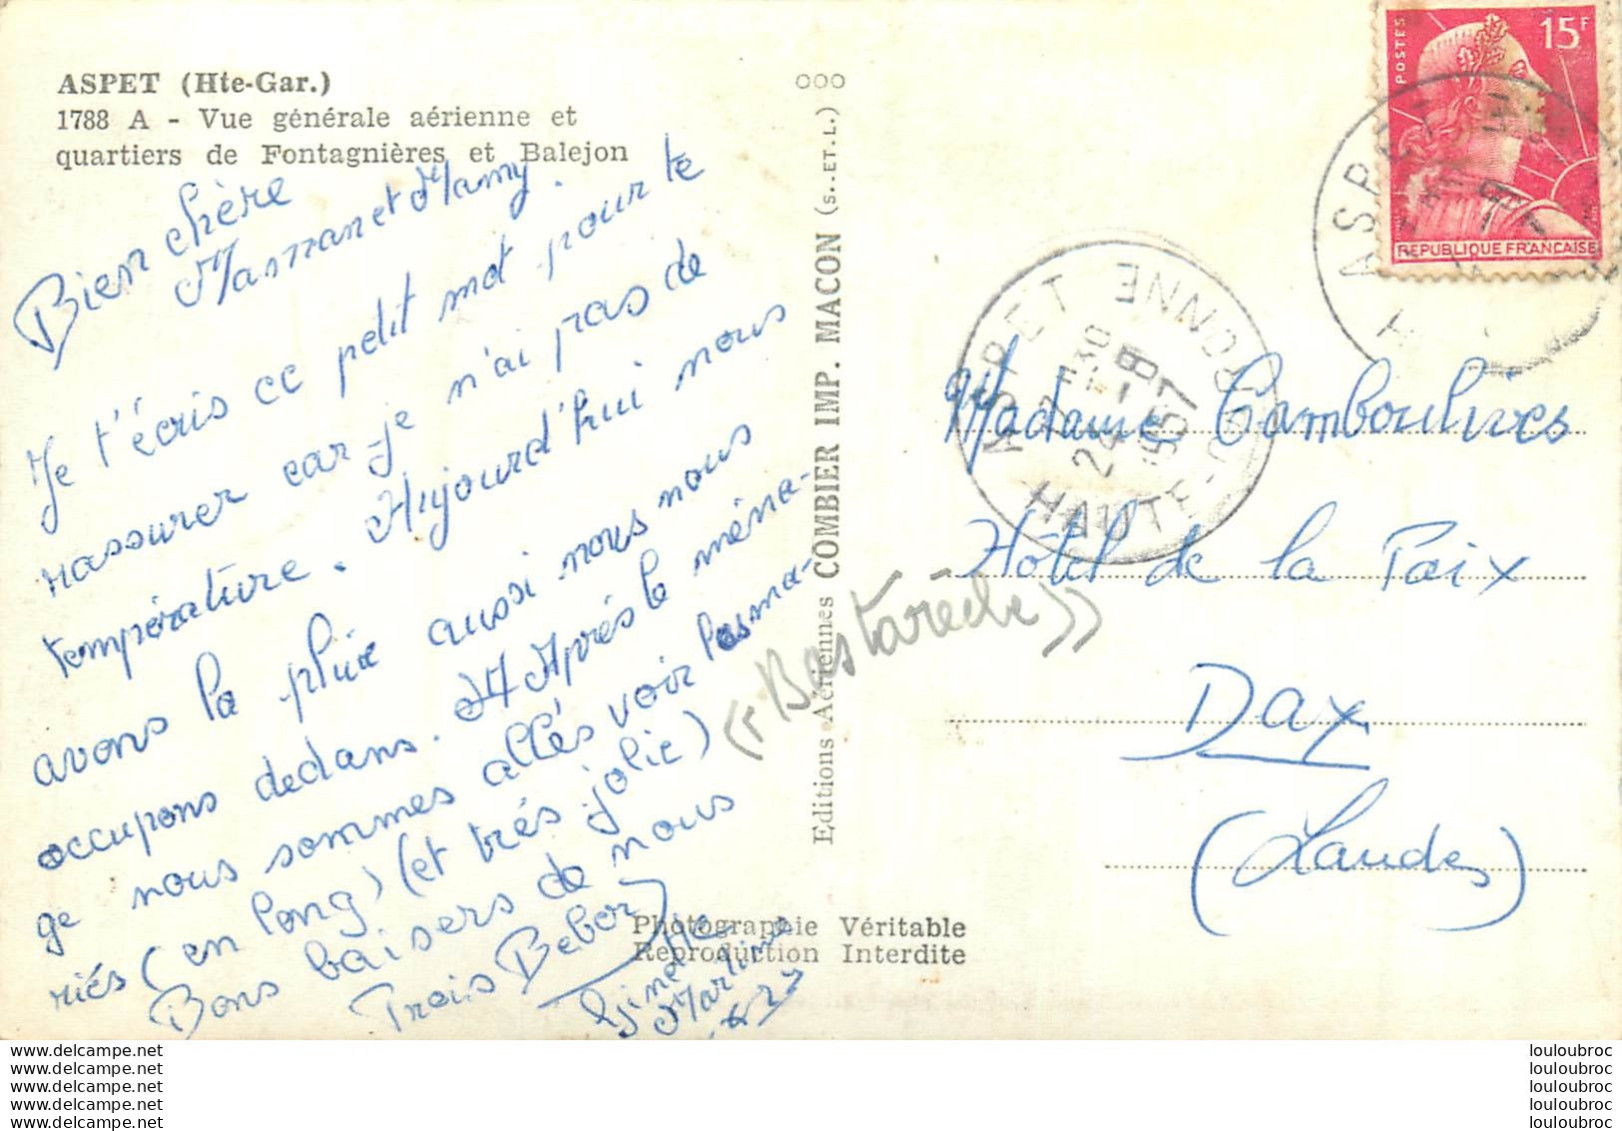 ASPET (Hte-Gar.)
1788 A - Vue générale aérienne et
quartiers de Fontagnières et Balejon
Bien chère
Maman et Mamy.
Je t'écris ce petit mot pour te
rassurer car je n'ai pas de
température. Aujourd'hui nous
avons la pluie aussi nous nous
occupons dedans. Après le ména-
ge nous sommes allés voir les ma-
riés (en long) (et trés jolie)
Bons baisers de nous
Trois Bebor
Ginette
Martine
« Bastarèche »
OOO
Editions Aériennes COMBIER IMP. MACON (S.-ET-L.)
Photographie Véritable
Reproduction Interdite
POSTES
15F
REPUBLIQUE FRANCAISE
ASPET
ASPET
HAUTE-GARONNE
24 - 8
1957
Madame Camboulives
Hôtel de la Paix
Dax
(Landes)
www.delcampe.net
www.delcampe.net
www.delcampe.net
www.delcampe.net
www.delcampe.net
louloubroc
louloubroc
louloubroc
louloubroc
louloubroc